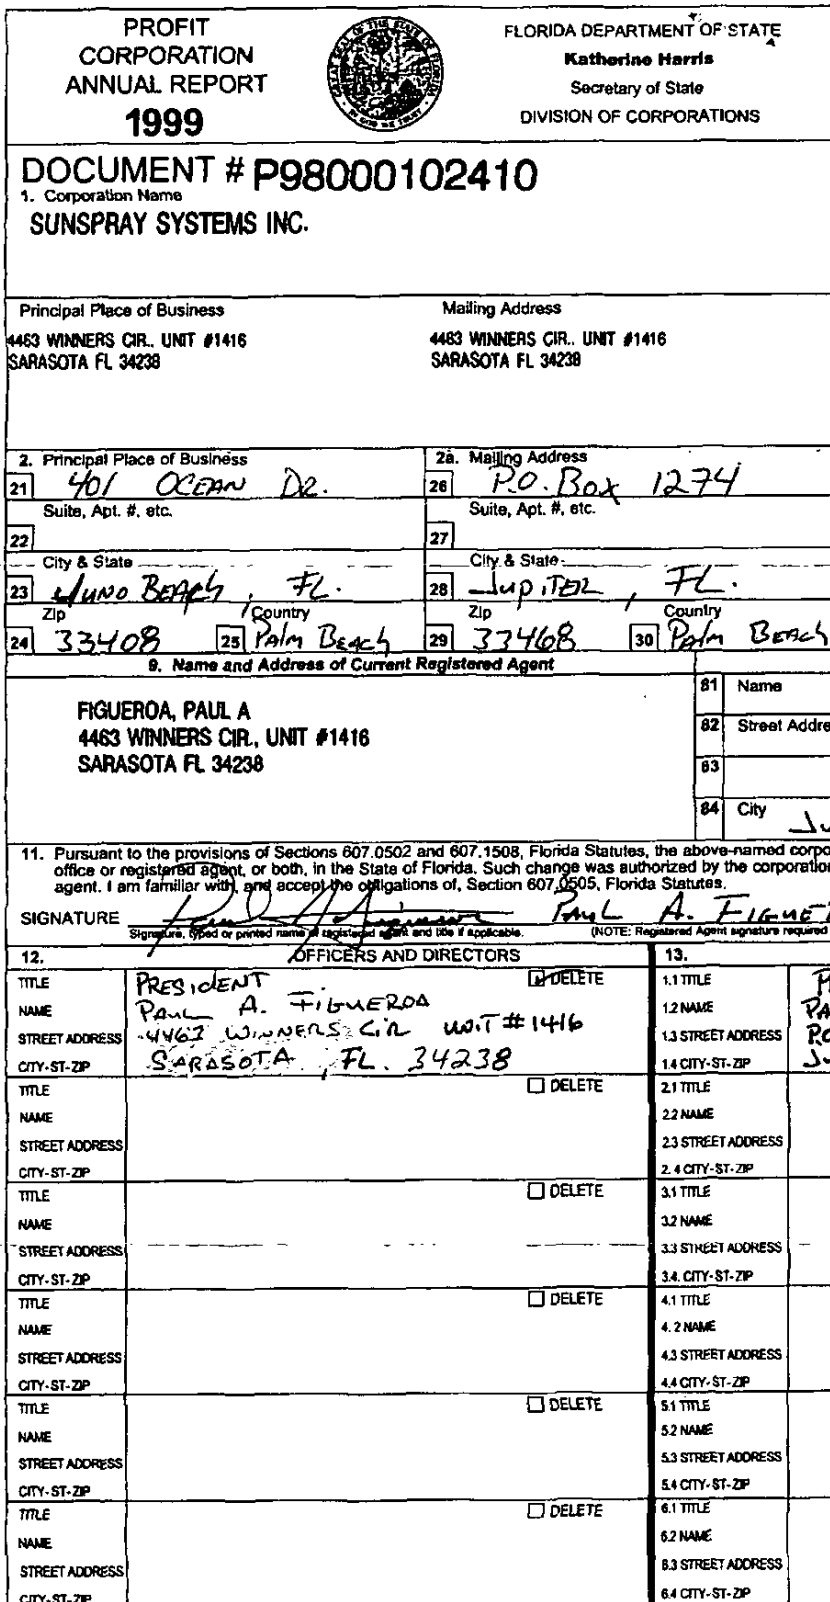 PROFIT
CORPORATION
ANNUAL REPORT
1999
FLORIDA DEPARTMENT OF STATE
Katherine Harris
Secretary of State
DIVISION OF CORPORATIONS
DOCUMENT # P98000102410
1. Corporation Name
SUNSPRAY SYSTEMS INC.
Principal Place of Business
4463 WINNERS CIR., UNIT #1416
SARASOTA FL 34238
Mailing Address
4463 WINNERS CIR., UNIT #1416
SARASOTA FL 34238
2. Principal Place of Business
21 401 OCEAN DR.
2a. Mailing Address
26 P.O. Box 1274
Suite, Apt. #, etc.
22
Suite, Apt. #, etc.
27
City & State
23 JUNO BEACH, FL.
City & State
28 JUPITER, FL.
Zip
24 33408
Country
25 PALM BEACH
Zip
29 33468
Country
30 PALM BEACH
9. Name and Address of Current Registered Agent
FIGUEROA, PAUL A
4463 WINNERS CIR., UNIT #1416
SARASOTA FL 34238
81 Name
82 Street Addre
83
84 City Ju
11. Pursuant to the provisions of Sections 607.0502 and 607.1508, Florida Statutes, the above-named corpo
office or registered agent, or both, in the State of Florida. Such change was authorized by the corporation
agent. I am familiar with, and accept the obligations of, Section 607.0505, Florida Statutes.
SIGNATURE PAUL A. FIGUE
Signature, typed or printed name of registered agent and title if applicable. (NOTE: Registered Agent signature required
12. OFFICERS AND DIRECTORS 13.
TITLE PRESIDENT DELETE
NAME PAUL A. FIGUEROA
STREET ADDRESS 4463 WINNERS CIR UNIT #1416
CITY-ST-ZIP SARASOTA, FL. 34238
1.1 TITLE P
1.2 NAME PA
1.3 STREET ADDRESS P.O
1.4 CITY-ST-ZIP Ju
TITLE DELETE
NAME
STREET ADDRESS
CITY-ST-ZIP
2.1 TITLE
2.2 NAME
2.3 STREET ADDRESS
2.4 CITY-ST-ZIP
TITLE DELETE
NAME
STREET ADDRESS
CITY-ST-ZIP
3.1 TITLE
3.2 NAME
3.3 STREET ADDRESS
3.4. CITY-ST-ZIP
TITLE DELETE
NAME
STREET ADDRESS
CITY-ST-ZIP
4.1 TITLE
4.2 NAME
4.3 STREET ADDRESS
4.4 CITY-ST-ZIP
TITLE DELETE
NAME
STREET ADDRESS
CITY-ST-ZIP
5.1 TITLE
5.2 NAME
5.3 STREET ADDRESS
5.4 CITY-ST-ZIP
TITLE DELETE
NAME
STREET ADDRESS
CITY-ST-ZIP
6.1 TITLE
6.2 NAME
6.3 STREET ADDRESS
6.4 CITY-ST-ZIP